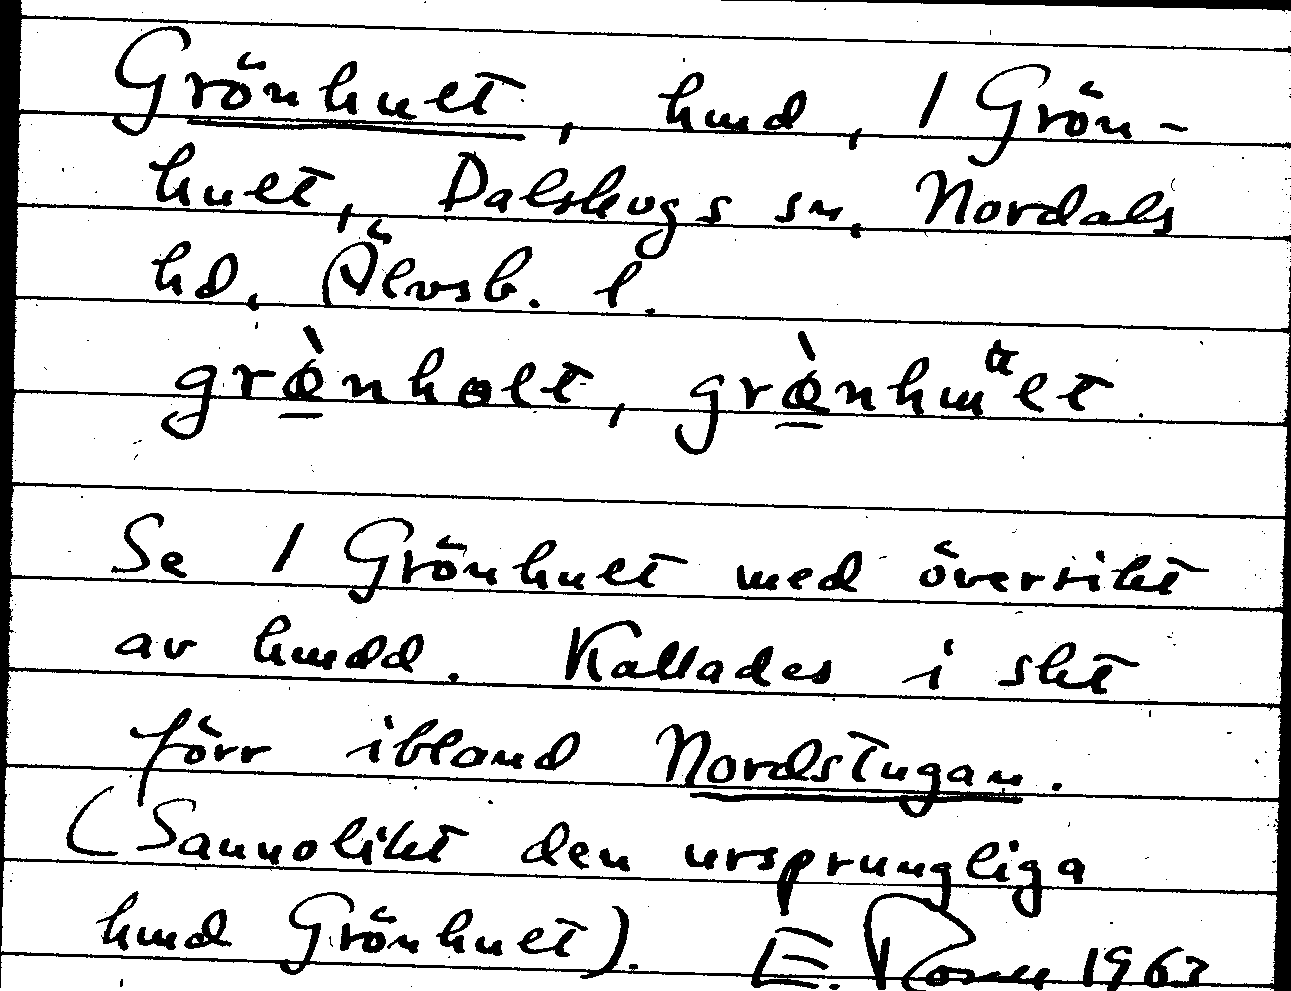 Grönhult, hmd, 1 Grön-
hult, Dalskogs sn, Nordals
hd, Älvsb. l.
grø̀nholt, grø̀nhult
Se 1 Grönhult med översikt
av hmdd. Kallades i skt
förr ibland Nordstugan.
(Sannolikt den ursprungliga
hmd Grönhult). E. 1963